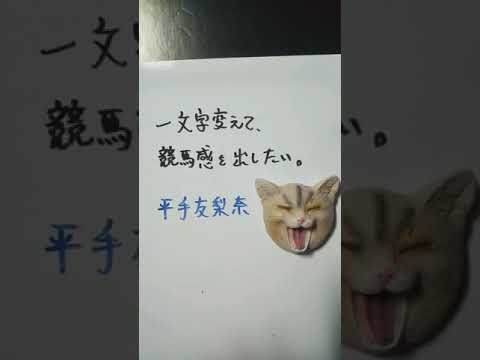 一文字変えて、
競馬感を出したい。
平手友梨奈